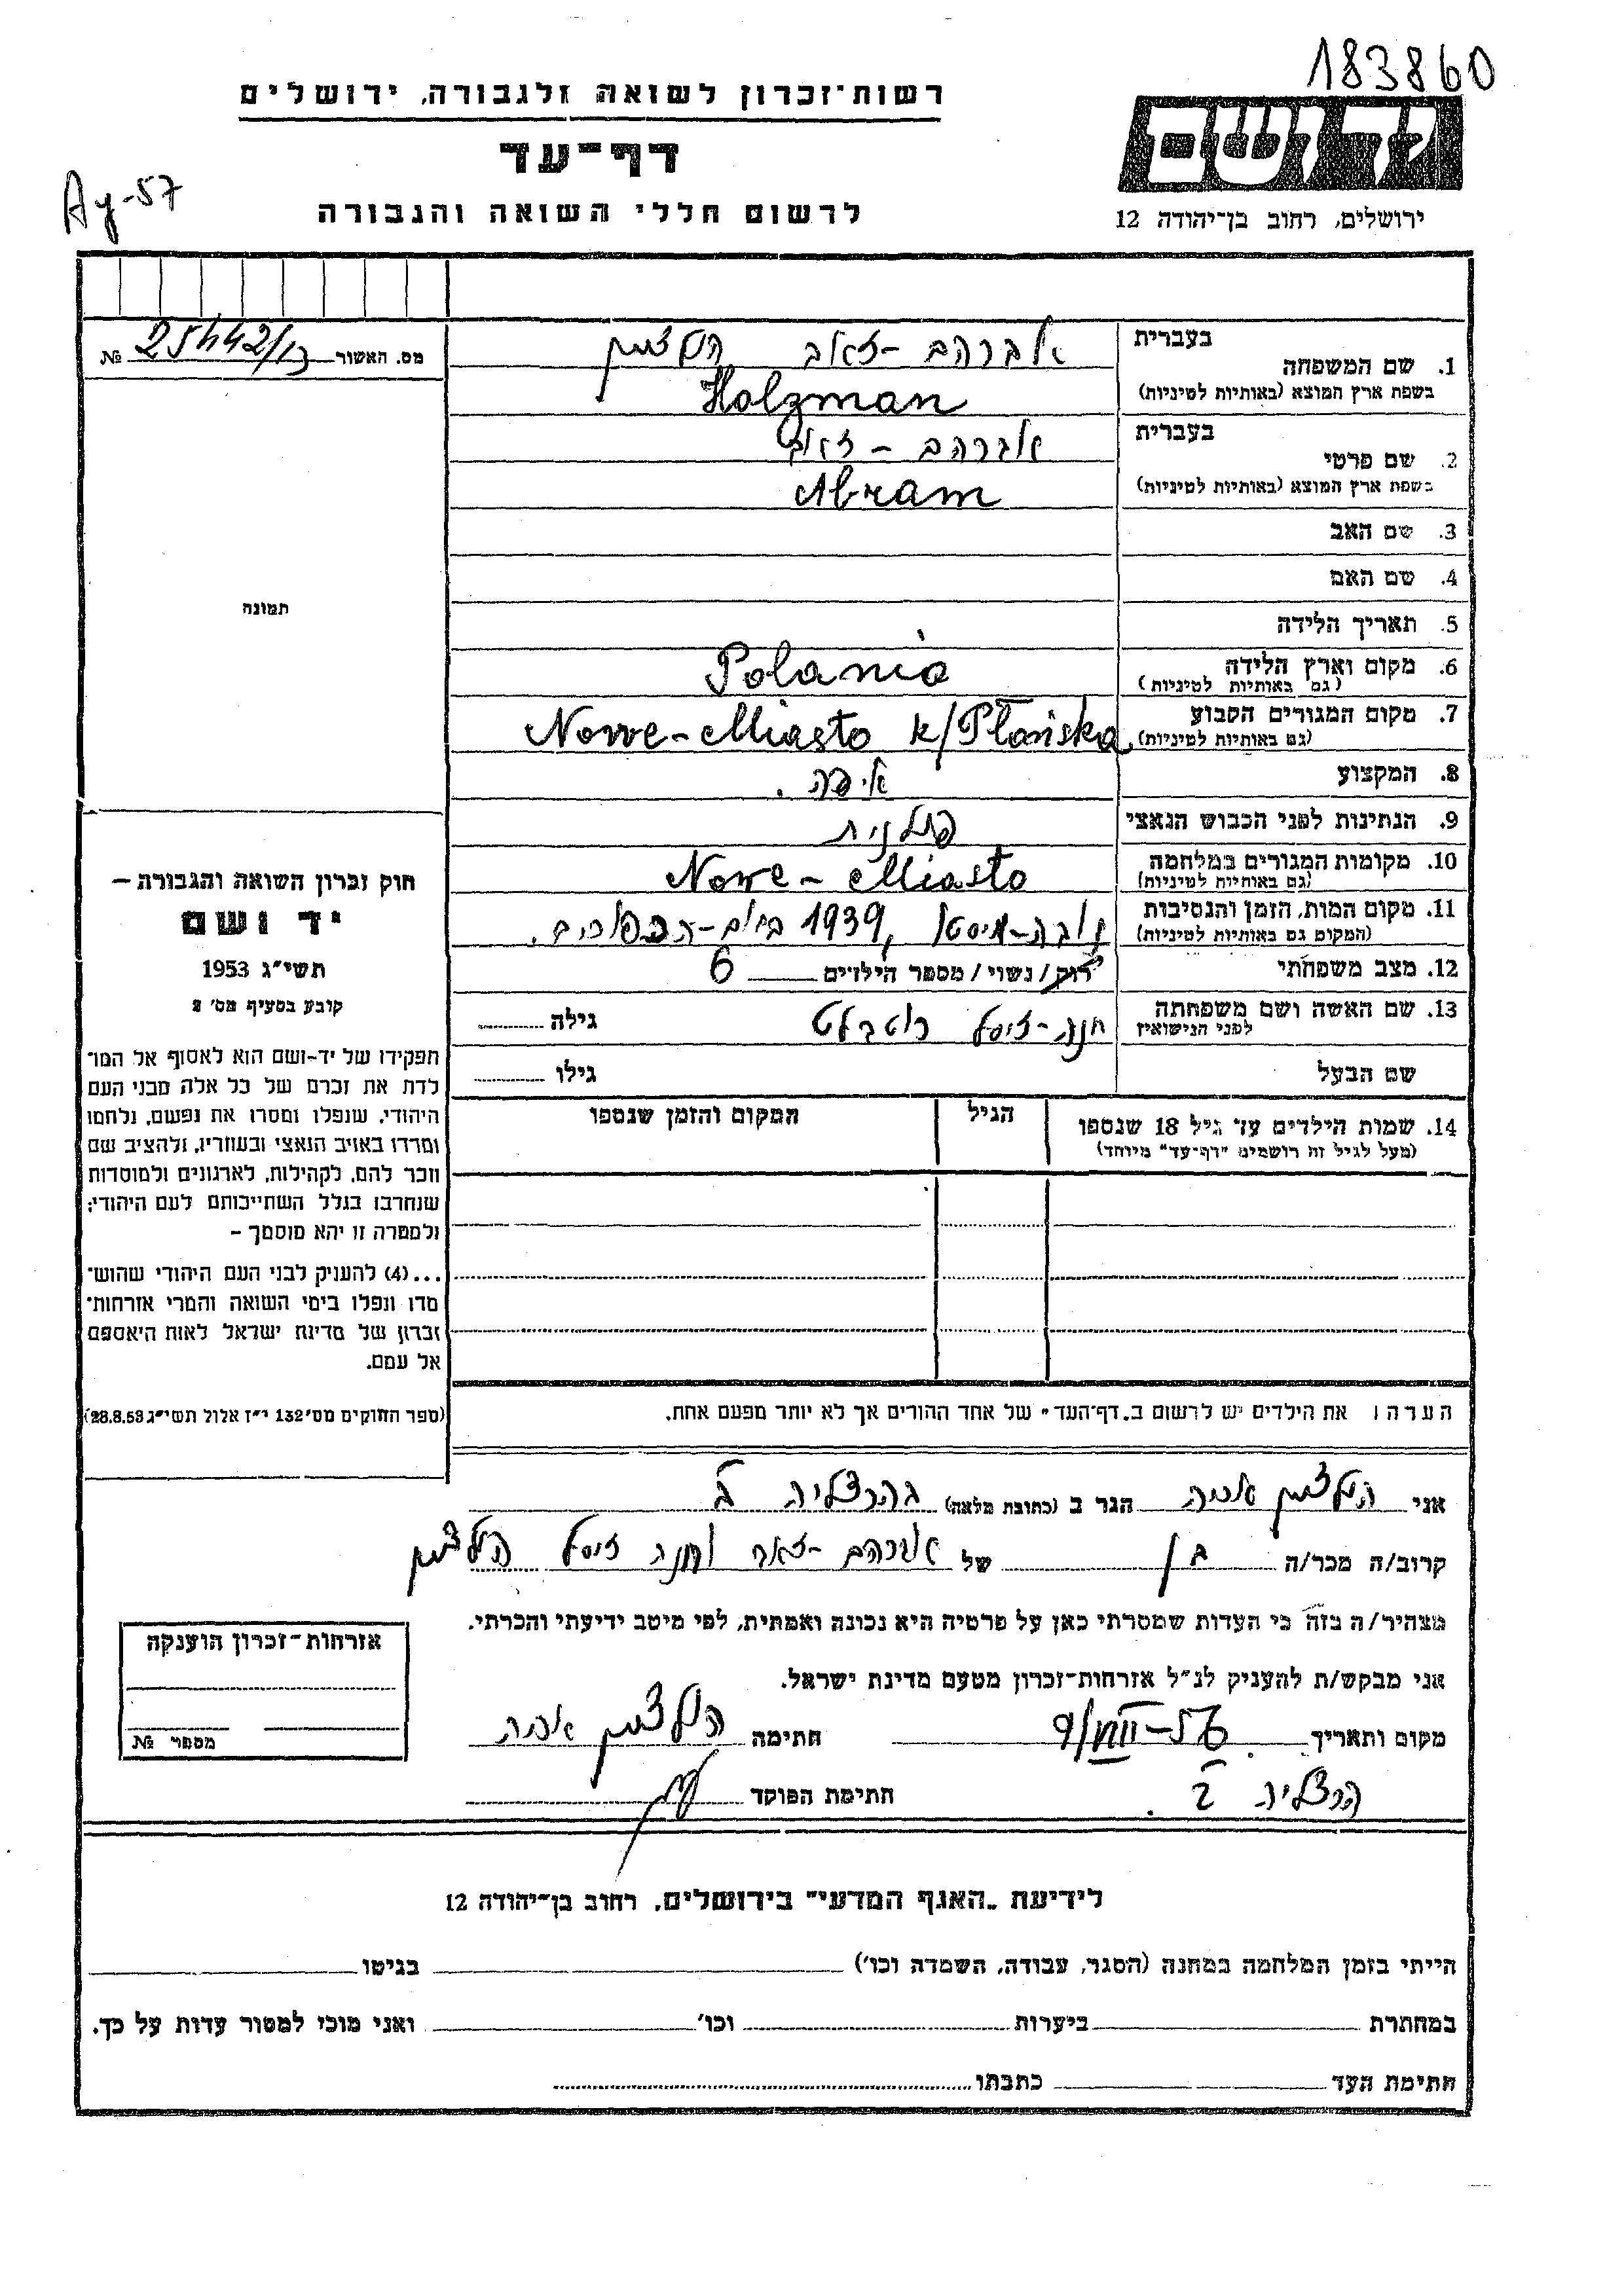 183860
רשות־זכרון לשואה ולגבורה, ירושלים
דף־עד
לרשום חללי השואה והגבורה
Ay-57
ירושלים, רחוב בן־יהודה 12
מס. האשור 25442/13 №
בעברית
1. שם המשפחה אברהם-זאב הולצמן
בשפת ארץ המוצא (באותיות לטיניות) Holzman
בעברית
2. שם פרטי אברהם - זאב
בשפת ארץ המוצא (באותיות לטיניות) Abram
3. שם האב
4. שם האם
5. תאריך הלידה
6. מקום וארץ הלידה Polania
(גם באותיות לטיניות)
7. מקום המגורים הקבוע Nowe-Miasto k/Płońska
(גם באותיות לטיניות)
8. המקצוע
9. הנתינות לפני הכבוש הנאצי פולנית
10. מקומות המגורים במלחמה Nowe-Miasto
(גם באותיות לטיניות)
11. מקום המות, הזמן והנסיבות 1939,
(המקום גם באותיות לטיניות)
12. מצב משפחתי רוק/נשוי/מספר הילדים 6
13. שם האשה ושם משפחתה חנה-זיסל
לפני הנישואין
גילה
שם הבעל
גילו
14. שמות הילדים עד גיל 18 שנספו
(מעל לגיל זה רושמים "דף־עד" מיוחד)
הגיל
המקום והזמן שנספו
הערה: את הילדים יש לרשום ב"דף־העד" של אחד ההורים אך לא יותר מפעם אחת.
תמונה
חוק זכרון השואה והגבורה –
יד ושם
תשי"ג 1953
קובע בסעיף מס' 2
תפקידו של יד-ושם הוא לאסוף אל המו־
לדת את זכרם של כל אלה מבני העם
היהודי, שנפלו ומסרו את נפשם, נלחמו
ומרדו באויב הנאצי ובעוזריו, ולהציב שם
וזכר להם, לקהילות, לארגונים ולמוסדות
שנחרבו בגלל השתייכותם לעם היהודי;
ולמטרה זו יהא מוסמך –
...(4) להעניק לבני העם היהודי שהוש־
מדו ונפלו בימי השואה והמרי אזרחות־
זכרון של מדינת ישראל לאות היאספם
אל עמם.
(ספר החוקים מס' 132 י"ז אלול תשי"ג 28.8.53)
אני הולצמן אריה הגר ב (כתובת מלאה) בהרצליה ב'
קרוב/ה מכר/ה בן של אברהם-זאב וחנה זיסל הולצמן
מצהיר/ה בזה כי העדות שמסרתי כאן על פרטיה היא נכונה ואמתית, לפי מיטב ידיעתי והכרתי.
אני מבקש/ת להעניק לנ"ל אזרחות־זכרון מטעם מדינת ישראל.
מקום ותאריך 9/VIII-56 חתימה הולצמן אריה
הרצליה ב'. חתימת הפוקד
אזרחות־זכרון הוענקה
מספר №
לידיעת "האגף המדעי" בירושלים, רחוב בן־יהודה 12
הייתי בזמן המלחמה במחנה (הסגר, עבודה, השמדה וכו') בגיטו
במחתרת ביערות וכו' ואני מוכן למסור עדות על כך.
חתימת העד כתבתו